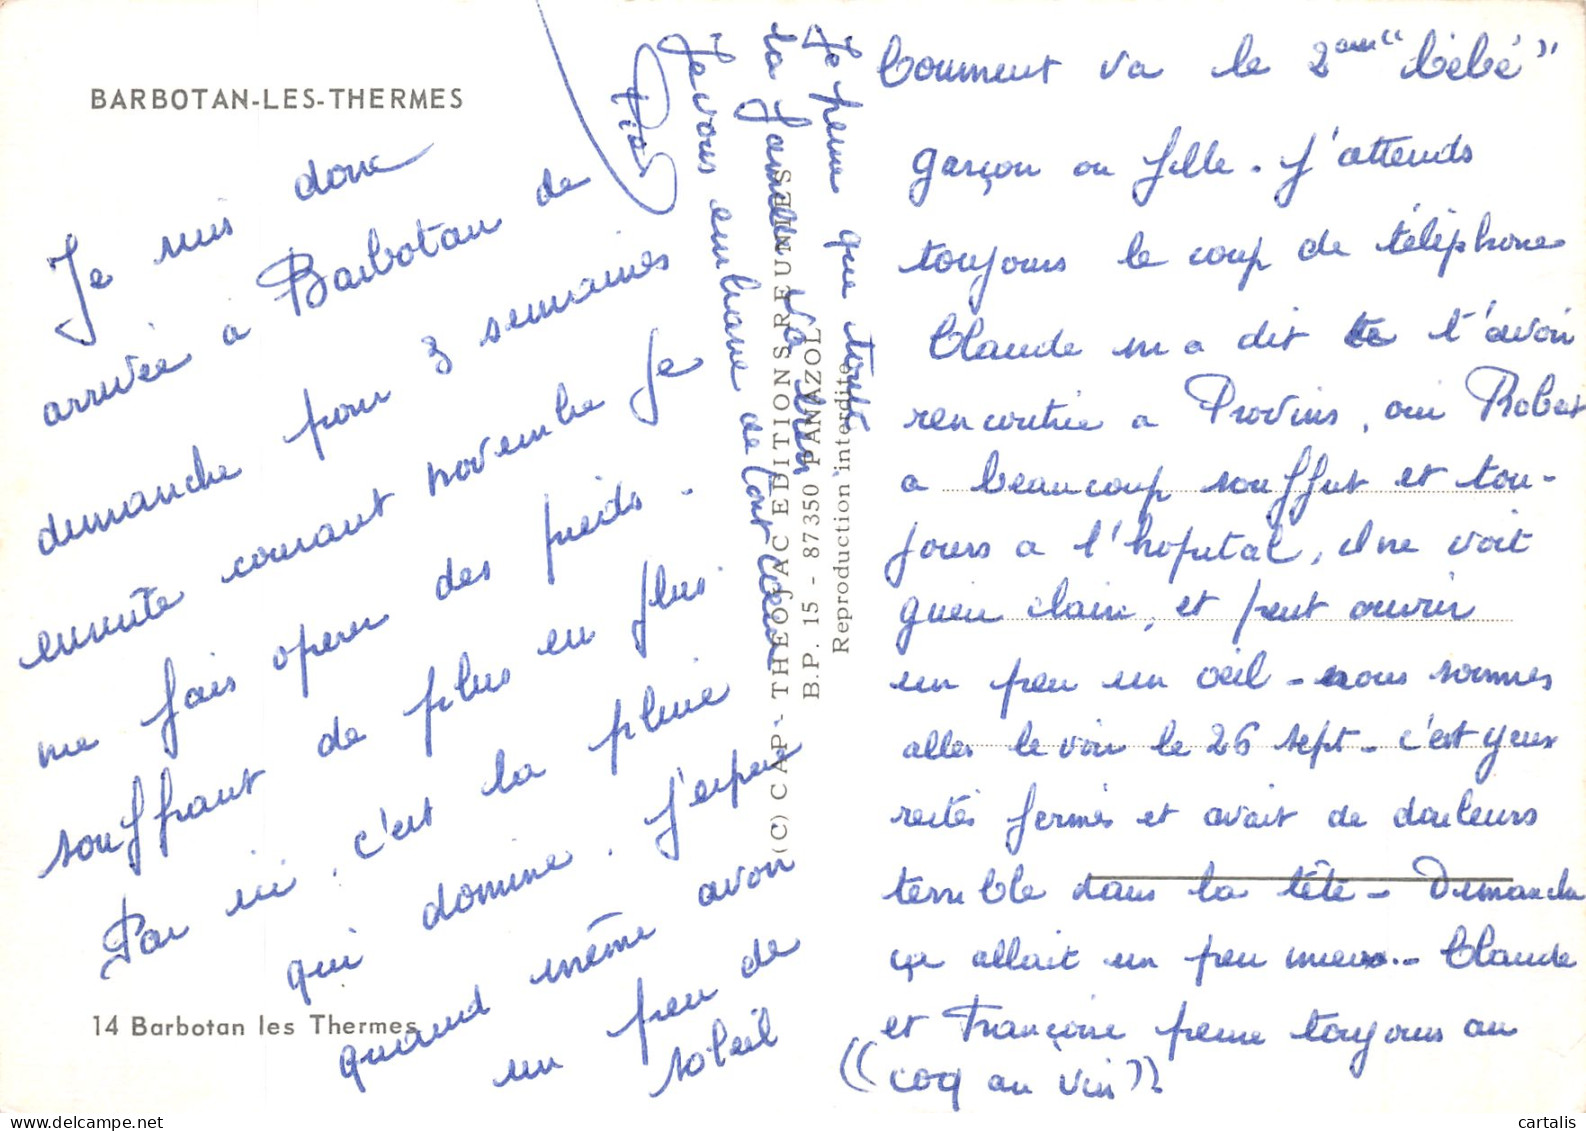 BARBOTAN-LES-THERMES
Je suis donc
arrivée a Barbotan de
demanche pour 3 semaines
ensuite courant novembre Je
me fais operer des pieds.
souffrant de plus en plus
Par ici, c'est la pluie
qui domine. J'espère
quand même avoir
un peu de
soleil
14 Barbotan les Thermes
Je pense que toute
la famille va bien
Je vous embrasse de tout coeur
(C) CAP - THEOJAC EDITIONS REUNIES
B.P. 15 - 87350 PANAZOL
Reproduction interdite
Comment va le 2eme "bébé"
garçon ou fille. J'attends
toujours le coup de téléphone
Claude m'a dit te t'avoir
rencontrée a Provins, oui Robert
a beaucoup souffert et tou-
jours a l'hopital, il ne voit
guère claire, et peut ouvrir
un peu un oeil - nous sommes
aller le voir le 26 sept - c'est yeux
restés fermés et avait de douleurs
terrible dans la tête - Demanche
ça allait un peu mieux.- Claude
et Françoise pense toujours au
((coq au vin))
cartalis